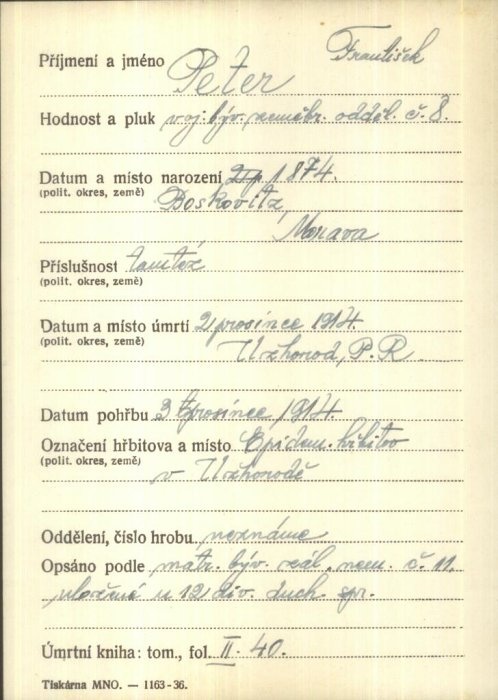 František
Příjmení a jméno Peter
Hodnost a pluk voj. býv. odděl. č. 8.
Datum a místo narození 1874.
(polit. okres, země) Boskovitz
Morava
Příslušnost tamtéž
(polit. okres, země)
Datum a místo úmrtí 2 prosince 1914.
(polit. okres, země) Užhorod, P. R.
Datum pohřbu 3 prosince 1914.
Označení hřbitova a místo Epidem. hřbitov
(polit. okres, země) v Užhorodě
Oddělení, číslo hrobu neznámé
Opsáno podle matr. býv. nem. č. 11.
uložené u 12 div. duch. spr.
Úmrtní kniha: tom., fol. II. 40.
Tiskárna MNO. — 1163-36.